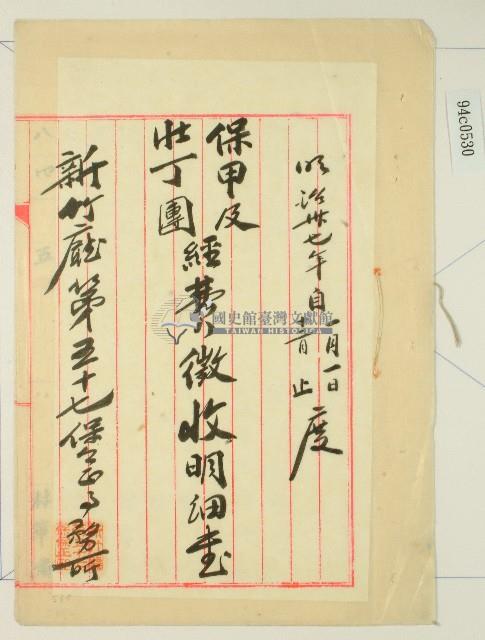 明治卅七年自一月一日
十二月止度
保甲及
壯丁團
經費徵收明細書
新竹廳第五十七保保正事務所
國史館臺灣文獻館
TAIWAN HISTORICA
94c0530